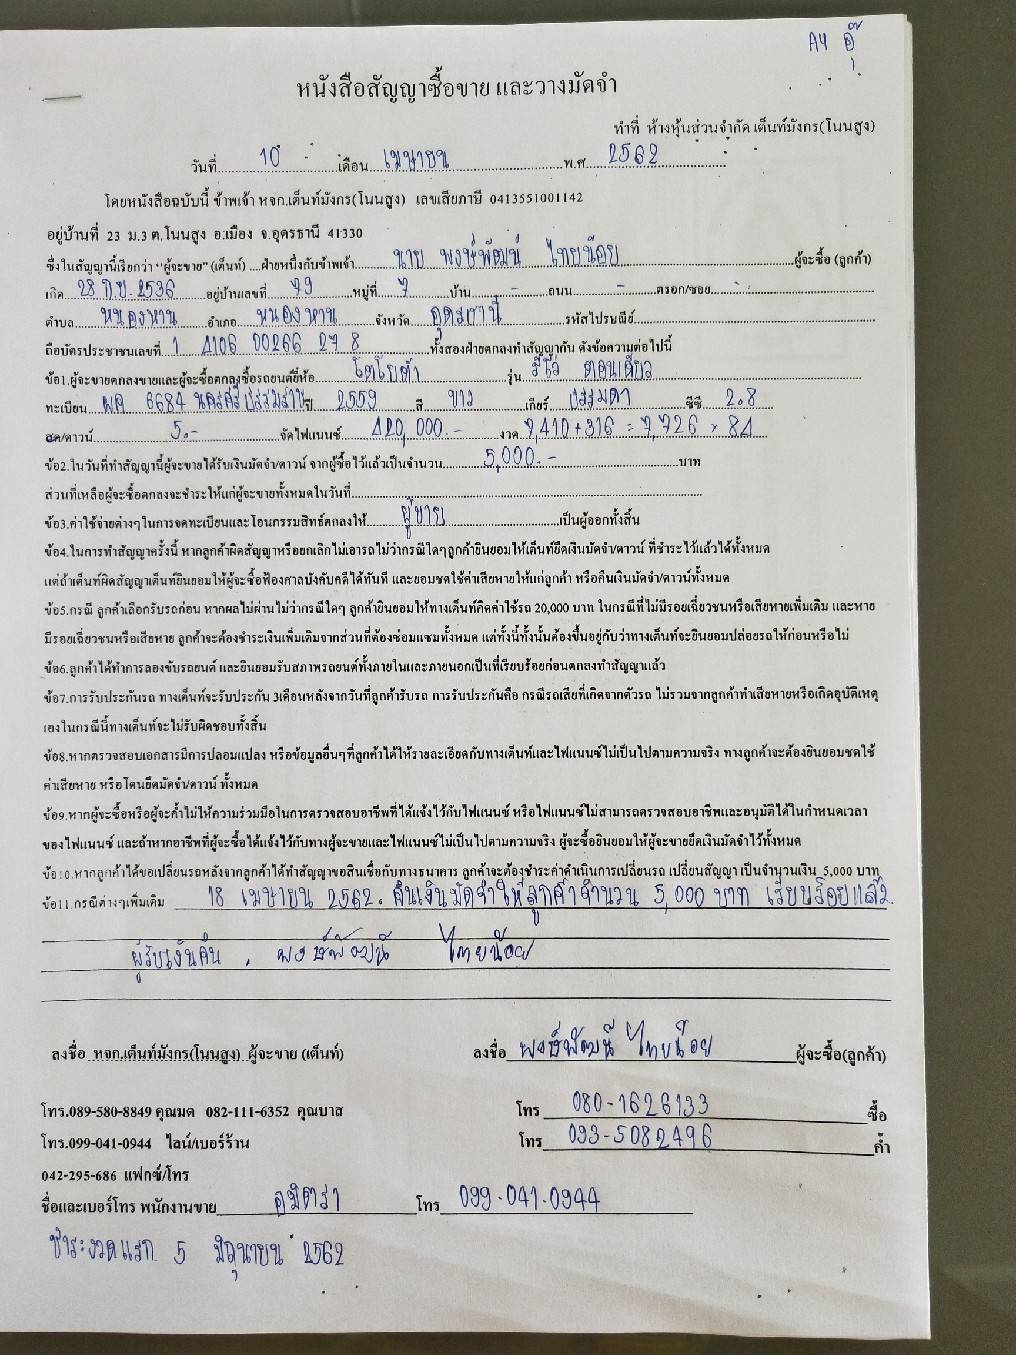 A4 อุ๊
หนังสือสัญญาซื้อขาย และวางมัดจำ
ทำที่ ห้างหุ้นส่วนจำกัด เต็นท์มังกร(โนนสูง)
วันที่ 10 เดือน เมษายน พ.ศ 2562
โดยหนังสือฉบับนี้ ข้าพเจ้า หจก.เต็นท์มังกร(โนนสูง) เลขเสียภาษี 0413551001142
อยู่บ้านที่ 23 ม.3 ต.โนนสูง อ.เมือง จ.อุดรธานี 41330
ซึ่งในสัญญานี้เรียกว่า "ผู้จะขาย" (เต็นท์) ฝ่ายหนึ่งกับข้าพเจ้า นาย พงษ์พัฒน์ ไทยน้อย ผู้จะซื้อ (ลูกค้า)
เกิด 28 ก.ย. 2536 อยู่บ้านเลขที่ 79 หมู่ที่ 7 บ้าน - ถนน - ตรอก/ซอย -
ตำบล หนองหาน อำเภอ หนองหาน จังหวัด อุดรธานี รหัสไปรษณีย์
ถือบัตรประชาชนเลขที่ 1 4106 00266 27 8 ทั้งสองฝ่ายตกลงทำสัญญากัน ดังข้อความต่อไปนี้
ข้อ1.ผู้จะขายตกลงขายและผู้จะซื้อตกลงซื้อรถยนต์ยี่ห้อ โตโยต้า รุ่น รีโว่ ตอนเดียว
ทะเบียน ผค 6684 นครศรีธรรมราช ปี 2559 สี ขาว เกียร์ ธรรมดา ซีซี 2.8
สด/ดาวน์ 5.- จัดไฟแนนซ์ 420,000.- งวด 7,410+316 = 7,726 x 84
ข้อ2.ในวันที่ทำสัญญานี้ผู้จะขายได้รับเงินมัดจำ/ดาวน์ จากผู้ซื้อไว้แล้วเป็นจำนวน 5,000.- บาท
ส่วนที่เหลือผู้จะซื้อตกลงจะชำระให้แก่ผู้จะขายทั้งหมดในวันที่
ข้อ3.ค่าใช้จ่ายต่างๆในการจดทะเบียนและโอนกรรมสิทธ์ตกลงให้ ผู้ขาย เป็นผู้ออกทั้งสิ้น
ข้อ4.ในการทำสัญญาครั้งนี้ หากลูกค้าผิดสัญญาหรือยกเลิกไม่เอารถไม่ว่ากรณีใดๆลูกค้ายินยอมให้เต็นท์ยึดเงินมัดจำ/ดาวน์ ที่ชำระไว้แล้วได้ทั้งหมด
แต่ถ้าเต็นท์ผิดสัญญาเต็นท์ยินยอมให้ผู้จะซื้อฟ้องศาลบังคับคดีได้ทันที และยอมชดใช้ค่าเสียหายให้แก่ลูกค้า หรือคืนเงินมัดจำ/ดาวน์ทั้งหมด
ข้อ5.กรณี ลูกค้าเลือกรับรถก่อน หากผลไม่ผ่านไม่ว่ากรณีใดๆ ลูกค้ายินยอมให้ทางเต็นท์คิดค่าใช้รถ 20,000 บาท ในกรณีที่ไม่มีรอยเฉี่ยวชนหรือเสียหายเพิ่มเติม และหาย
มีรอยเฉี่ยวชนหรือเสียหาย ลูกค้าจะต้องชำระเงินเพิ่มเติมจากส่วนที่ต้องซ่อมแซมทั้งหมด แต่ทั้งนี้ทั้งนั้นต้องขึ้นอยู่กับว่าทางเต็นท์จะยินยอมปล่อยรถให้ก่อนหรือไม่
ข้อ6.ลูกค้าได้ทำการลองขับรถยนต์ และยินยอมรับสภาพรถยนต์ทั้งภายในและภายนอกเป็นที่เรียบร้อยก่อนตกลงทำสัญญาแล้ว
ข้อ7.การรับประกันรถ ทางเต็นท์จะรับประกัน 3เดือนหลังจากวันที่ลูกค้ารับรถ การรับประกันคือ กรณีรถเสียที่เกิดจากตัวรถ ไม่รวมจากลูกค้าทำเสียหายหรือเกิดอุบัติเหตุ
เองในกรณีนี้ทางเต็นท์จะไม่รับผิดชอบทั้งสิ้น
ข้อ8.หากตรวจสอบเอกสารมีการปลอมแปลง หรือข้อมูลอื่นๆที่ลูกค้าได้ให้รายละเอียดกับทางเต็นท์และไฟแนนซ์ไม่เป็นไปตามความจริง ทางลูกค้าจะต้องยินยอมชดใช้
ค่าเสียหาย หรือโดนยึดมัดจำ/ดาวน์ ทั้งหมด
ข้อ9.หากผู้จะซื้อหรือผู้จะค้ำไม่ให้ความร่วมมือในการตรวจสอบอาชีพที่ได้แจ้งไว้กับไฟแนนซ์ หรือไฟแนนซ์ไม่สามารถตรวจสอบอาชีพและอนุมัติได้ในกำหนดเวลา
ของไฟแนนซ์ และถ้าหากอาชีพที่ผู้จะซื้อได้แจ้งไว้กับทางผู้จะขายและไฟแนนซ์ไม่เป็นไปตามความจริง ผู้จะซื้อยินยอมให้ผู้จะขายยึดเงินมัดจำไว้ทั้งหมด
ข้อ10.หากลูกค้าได้ขอเปลี่ยนรถหลังจากลูกค้าได้ทำสัญญาขอสินเชื่อกับทางธนาคาร ลูกค้าจะต้องชำระค่าดำเนินการเปลี่ยนรถ เปลี่ยนสัญญา เป็นจำนวนเงิน 5,000 บาท
ข้อ11.กรณีต่างๆเพิ่มเติม 18 เมษายน 2562. คืนเงินมัดจำให้ลูกค้าจำนวน 5,000 บาท เรียบร้อยแล้ว.
ผู้รับเงินคืน . พงษ์พัฒน์ ไทยน้อย
ลงชื่อ หจก.เต็นท์มังกร(โนนสูง) ผู้จะขาย (เต็นท์) ลงชื่อ พงษ์พัฒน์ ไทยน้อย ผู้จะซื้อ(ลูกค้า)
โทร.089-580-8849 คุณมด 082-111-6352 คุณบาส โทร 080-1626133 ซื้อ
โทร.099-041-0944 ไลน์/เบอร์ร้าน โทร 093-5082496 ค้ำ
042-295-686 แฟกซ์/โทร
ชื่อและเบอร์โทร พนักงานขาย อมิตรา โทร 099-041-0944
ชำระงวดแรก 5 มิถุนายน 2562